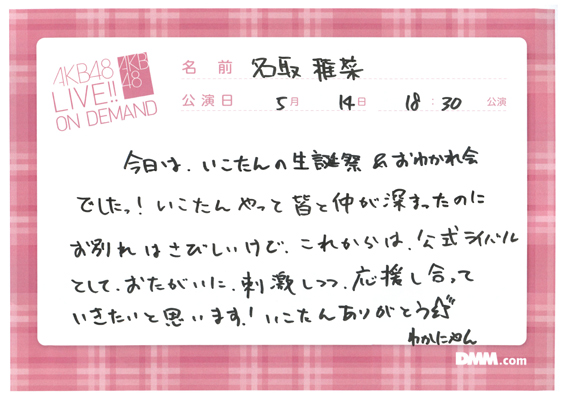 AKB48
LIVE!!
ON DEMAND
AKB
48
名前 名取稚菜
公演日 5月 14日 18:30 公演
今日は、いこたんの生誕祭&おわかれ会
でしたっ!いこたんやって皆と仲が深まったのに
お別れはさびしいけど、これからは、公式ライバル
として、おたがいに、刺激しつつ、応援し合って
いきたいと思います!いこたんありがとう
わかにゃん
DMM.com